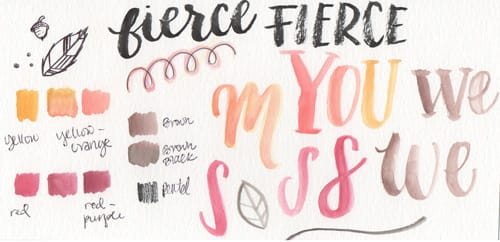 fierce FIERCE
m YOU we
yellow yellow-
orange
Brown
Brown
Black
Pastel
S S S we
red red-
purple